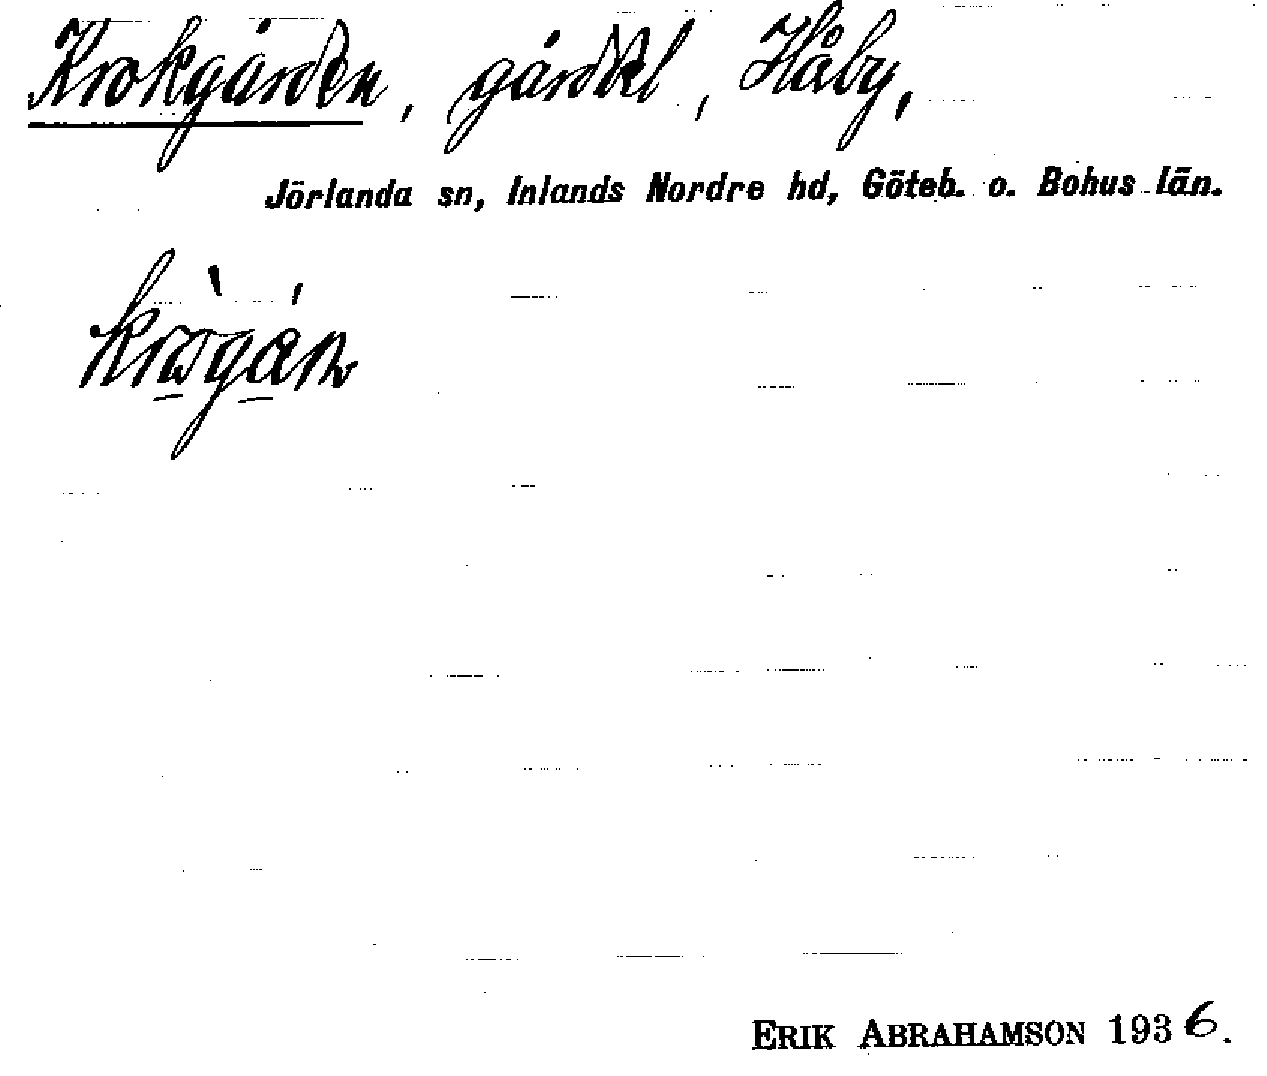 Krokgården, gårdel, Håby,
Jörlanda sn, Inlands Nordre hd, Göteb. o. Bohus län.
ERIK ABRAHAMSON 1936.